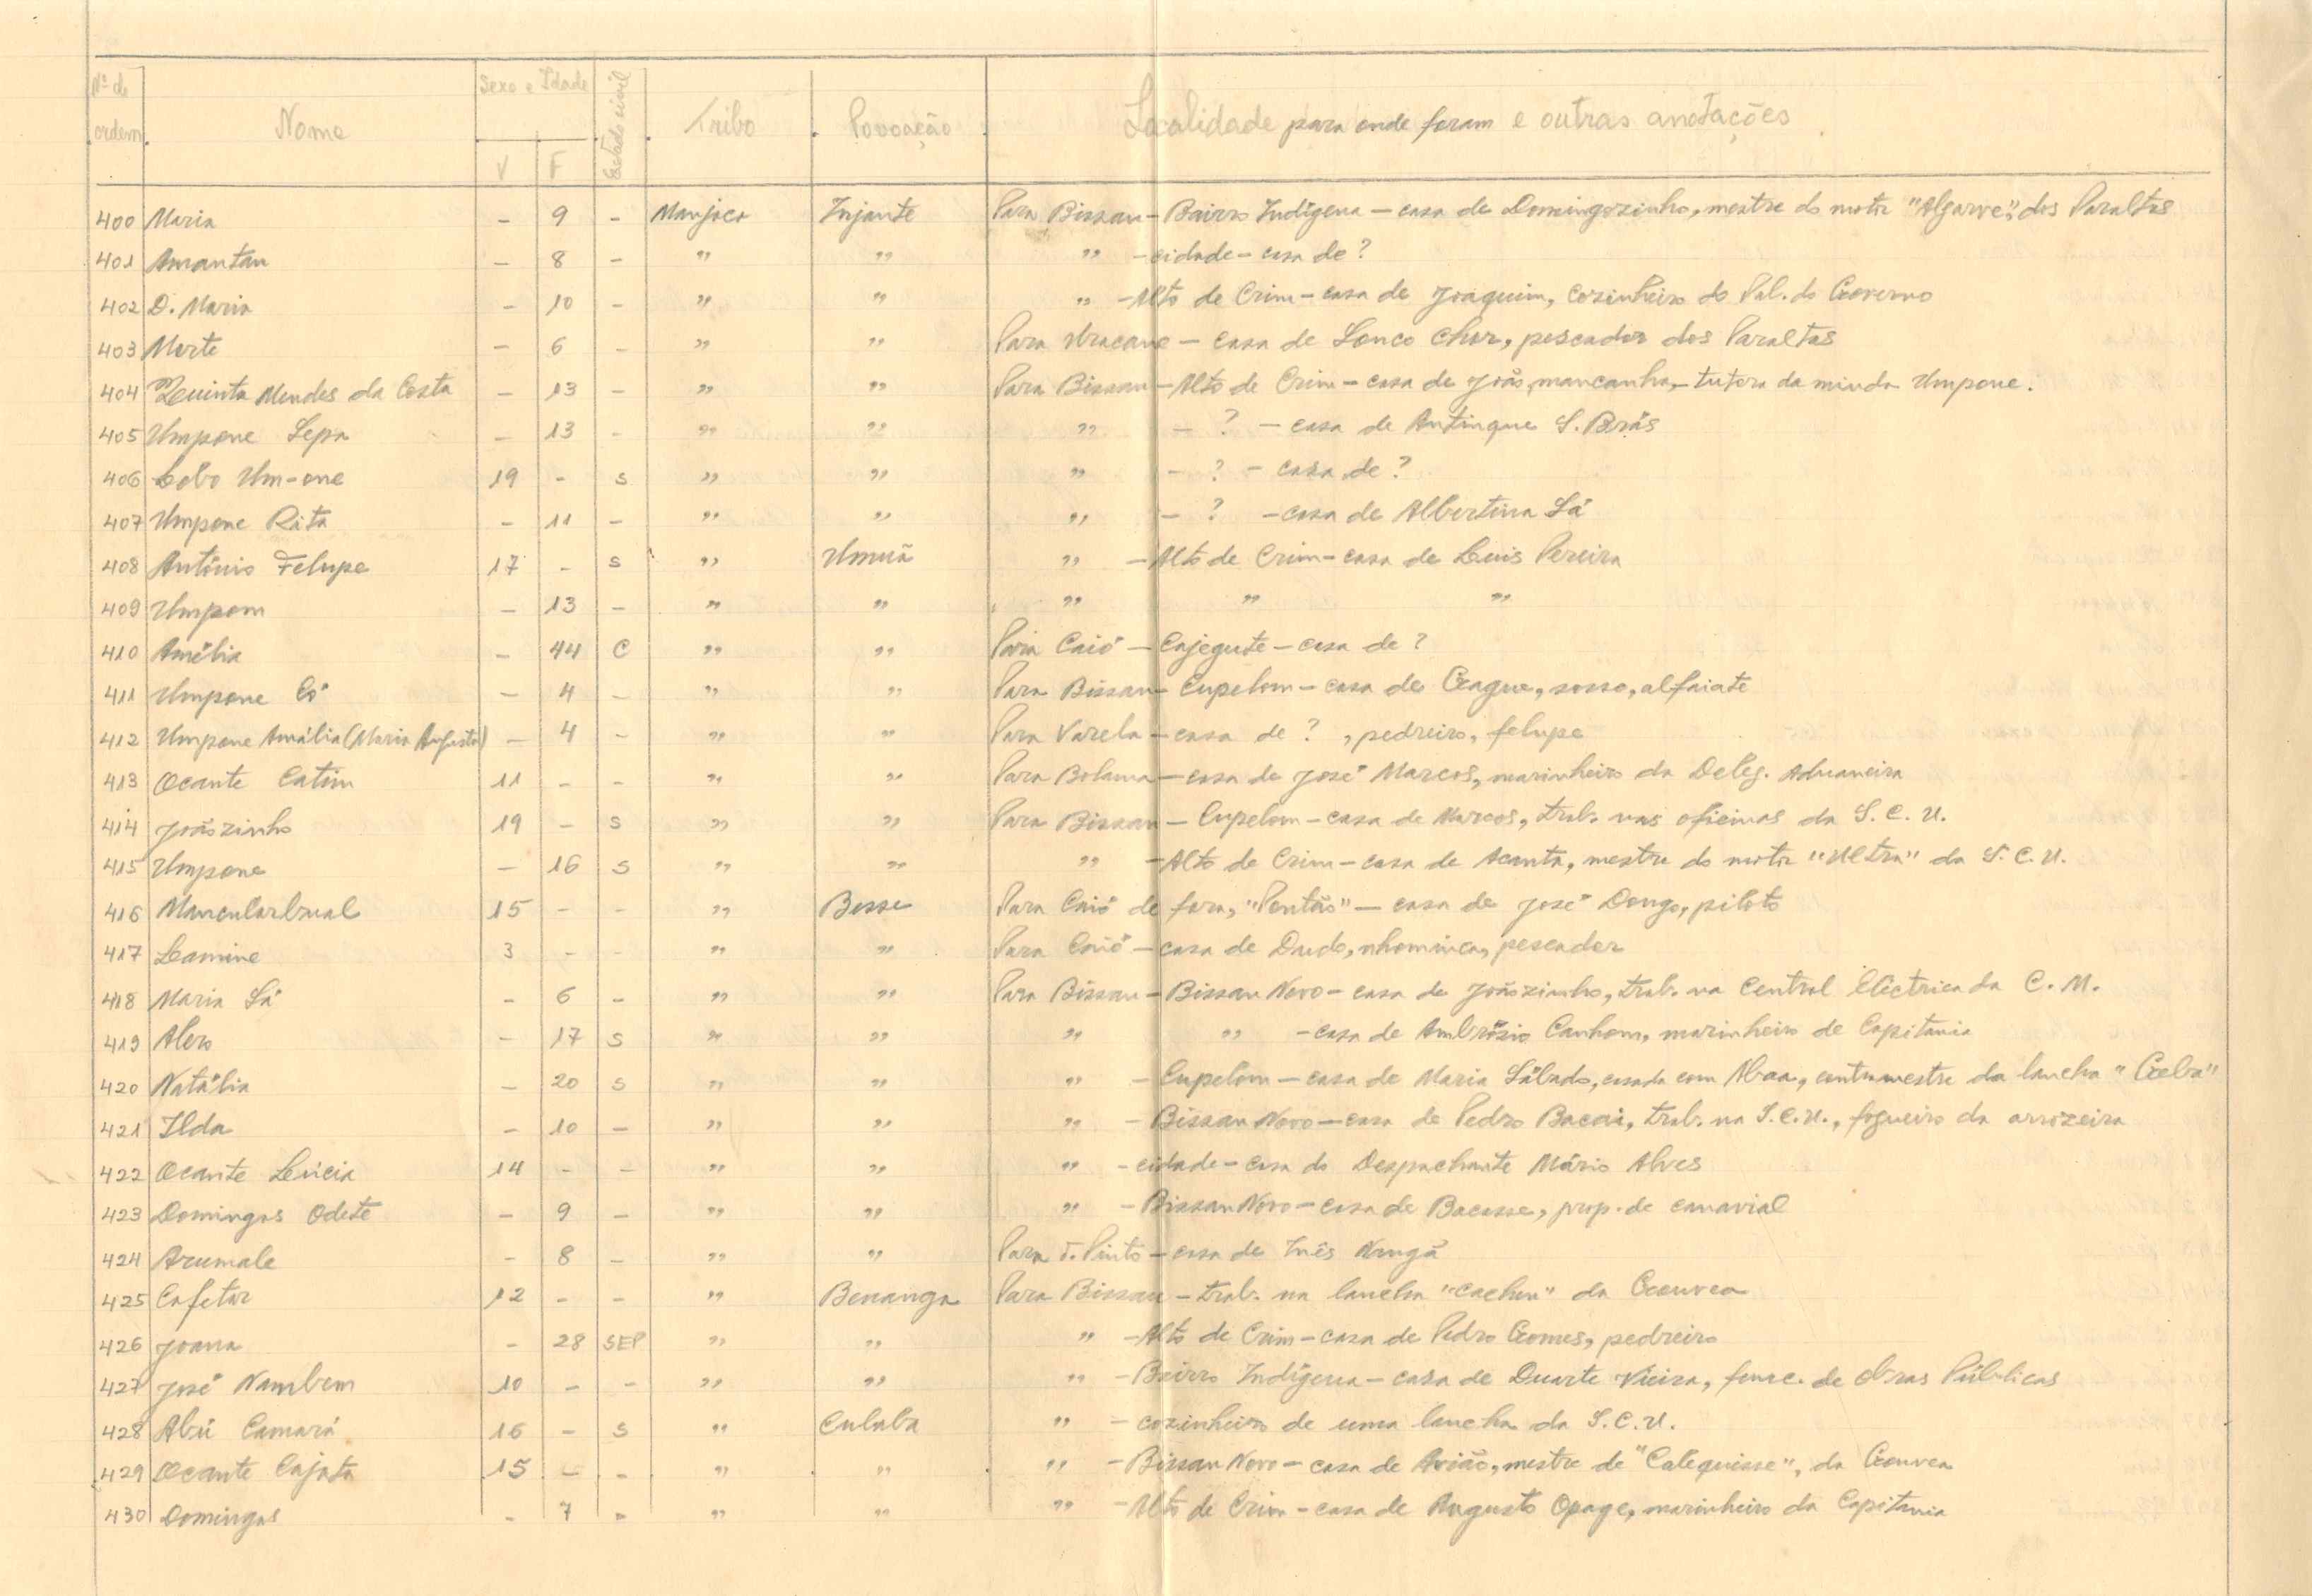 Nº de ordem Nome Sexo e Idade V F Estado civil Tribo Povoação Localidade para onde foram e outras anotações
400 Maria - 9 - Manjaco Injante Para Bissau - Bairro Indígena - casa de Domingozinho, mestre do motor "Algarve", dos Paraltas
401 Amantau - 8 - " " " - cidade - casa de ?
402 D. Maria - 10 - " " " - Alto de Crim - casa de Joaquim, cozinheiro do Pal. do Governo
403 Morte - 6 - " " Para - casa de Lonco Chor, pescador dos Paraltas
404 Quinta Mendes da Costa - 13 - " " Para Bissau - Alto de Crim - casa de João, mancanha, tutora da miuda Umpone.
405 Umpone Sepa - 13 - " " " - ? - casa de Antinque S. Brás
406 Lobo Um-one 19 - s " " " - ? - casa de ?
407 Umpone Rita - 11 - " " " - ? - casa de Albertina Sá
408 António Felupe 17 - s " Umuã " - Alto de Crim - casa de Luis Pereira
409 Umpom - 13 - " " " " "
410 Amélia - 44 C " " Para Caió - Cajegute - casa de ?
411 Umpone Có - 4 - " " Para Bissau - Cupelom - casa de Gague, sosso, alfaiate
412 Umpone Amália (Maria Augusta) - 4 - " " Para Varela - casa de ? , pedreiro, felupe
413 Ocante Catim 11 - - " " Para Bolama - casa de José Marcos, marinheiro da Deleg. Aduaneira
414 Joãozinho 19 - s " " Para Bissau - Cupelom - casa de Marcos, trab. nas oficinas da S. C. U.
415 Umpone - 16 s " " " - Alto de Crim - casa de Acanta, mestre do motor "Ultra" da S. C. U.
416 15 - - " Besse Para Caió de fora, "Pontão" - casa de José Dongo, piloto
417 Lamine 3 - - " " Para Caió - casa de Dudo, nhominca, pescador
418 Maria Sá - 6 - " " Para Bissau - Bissau Novo - casa de Joãozinho, trab. na Central Eléctrica da C. M.
419 Alero - 17 s " " " " - casa de Ambrósio Canhom, marinheiro de Capitania
420 Natália - 20 s " " " - Cupelom - casa de Maria Sábado, casada com Nbaa, contramestre da lancha "Geba"
421 Ilda - 10 - " " " - Bissau Novo - casa de Pedro Bacai, trab. na S.C.U., fogueiro da arrozeira
422 Ocante Lúcia 14 - - " " " - cidade - casa do Despachante Mário Alves
423 Domingas Odete - 9 - " " " - Bissau Novo - casa de Bacasse, prop. de canavial
424 Arumale - 8 - " " Para T. Pinto - casa de Inês Nangã
425 Cafetar 12 - - " Benanga Para Bissau - trab. na lancha "Cacheu" da Gouvea
426 Joana - 28 SEP " " " - Alto de Crim - casa de Pedro Gomes, pedreiro
427 José Nambem 10 - - " " " - Bairro Indígena - casa de Duarte Vieira, func. de Obras Públicas
428 Abú Camará 16 - s " Culaba " - cozinheiro de uma lancha da S.C.U.
429 Ocante Cajata 15 - - " " " - Bissau Novo - casa de Avião, mestre de "Calequisse", da Gouvea
430 Domingas - 7 - " " " - Alto de Crim - casa de Augusto Opage, marinheiro da Capitania